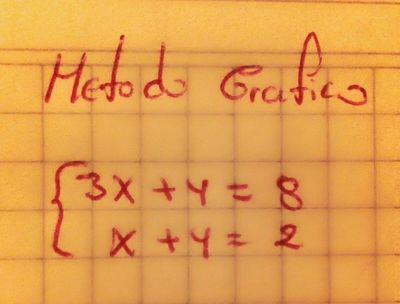 Metodo Grafico
3x + y = 8
x + y = 2